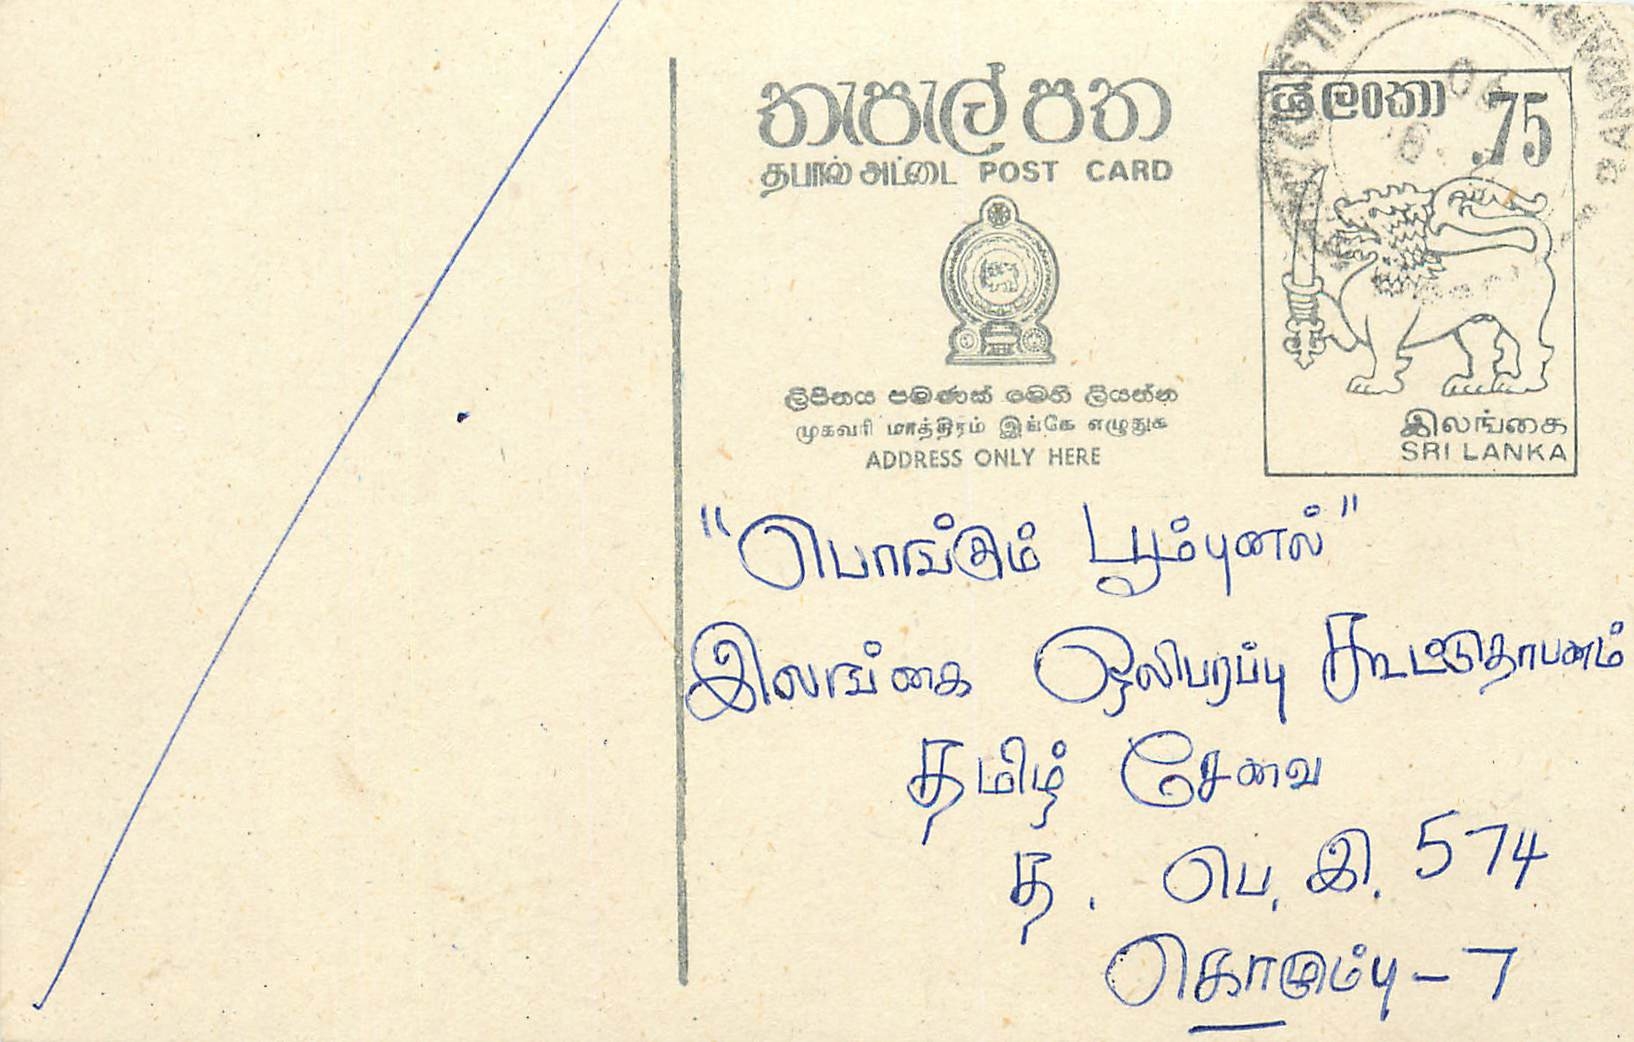 තැපැල් පත
தபால் அட்டை POST CARD
ශ්‍රී ලංකා .75
ලිපිනය පමණක් මෙහි ලියන්න
முகவரி மாத்திரம் இங்கே எழுதுக
ADDRESS ONLY HERE
இலங்கை
SRI LANKA
"பொங்கும் பூம்புனல்"
இலங்கை ஒலிபரப்பு கூட்டுதாபனம்
தமிழ் சேவை
த. பெ. இ. 574
கொழும்பு - 7